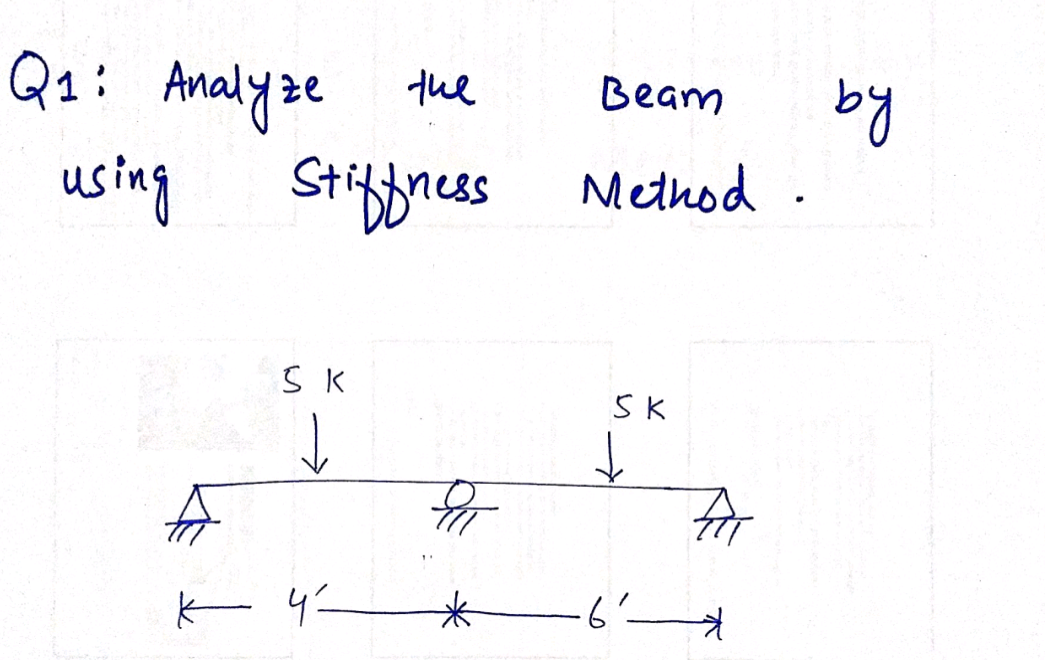 Q1: Analyze the Beam by
using Stiffness Method.
5 K
5 K
4'
6'